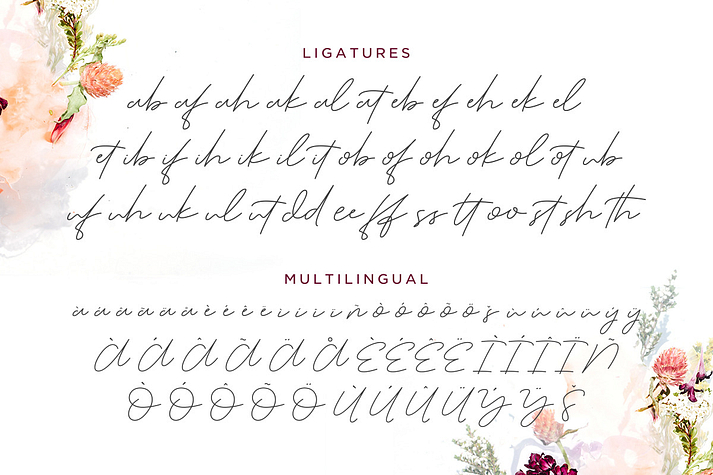 LIGATURES
ab af ah ak al at eb ef eh ek el
et ib if ih ik il it ob of oh ok ol ot ub
uf uh uk ul ut dd ee ff ss tt oo st sh th
MULTILINGUAL
à á â ã ä å è é ê ë ì í î ï ñ ò ó ô õ ö š ù ú û ü ý ÿ
À Á Â Ã Ä Å È É Ê Ë Ì Í Î Ï Ñ
Ò Ó Ô Õ Ö Ù Ú Û Ü Ý Ÿ Š